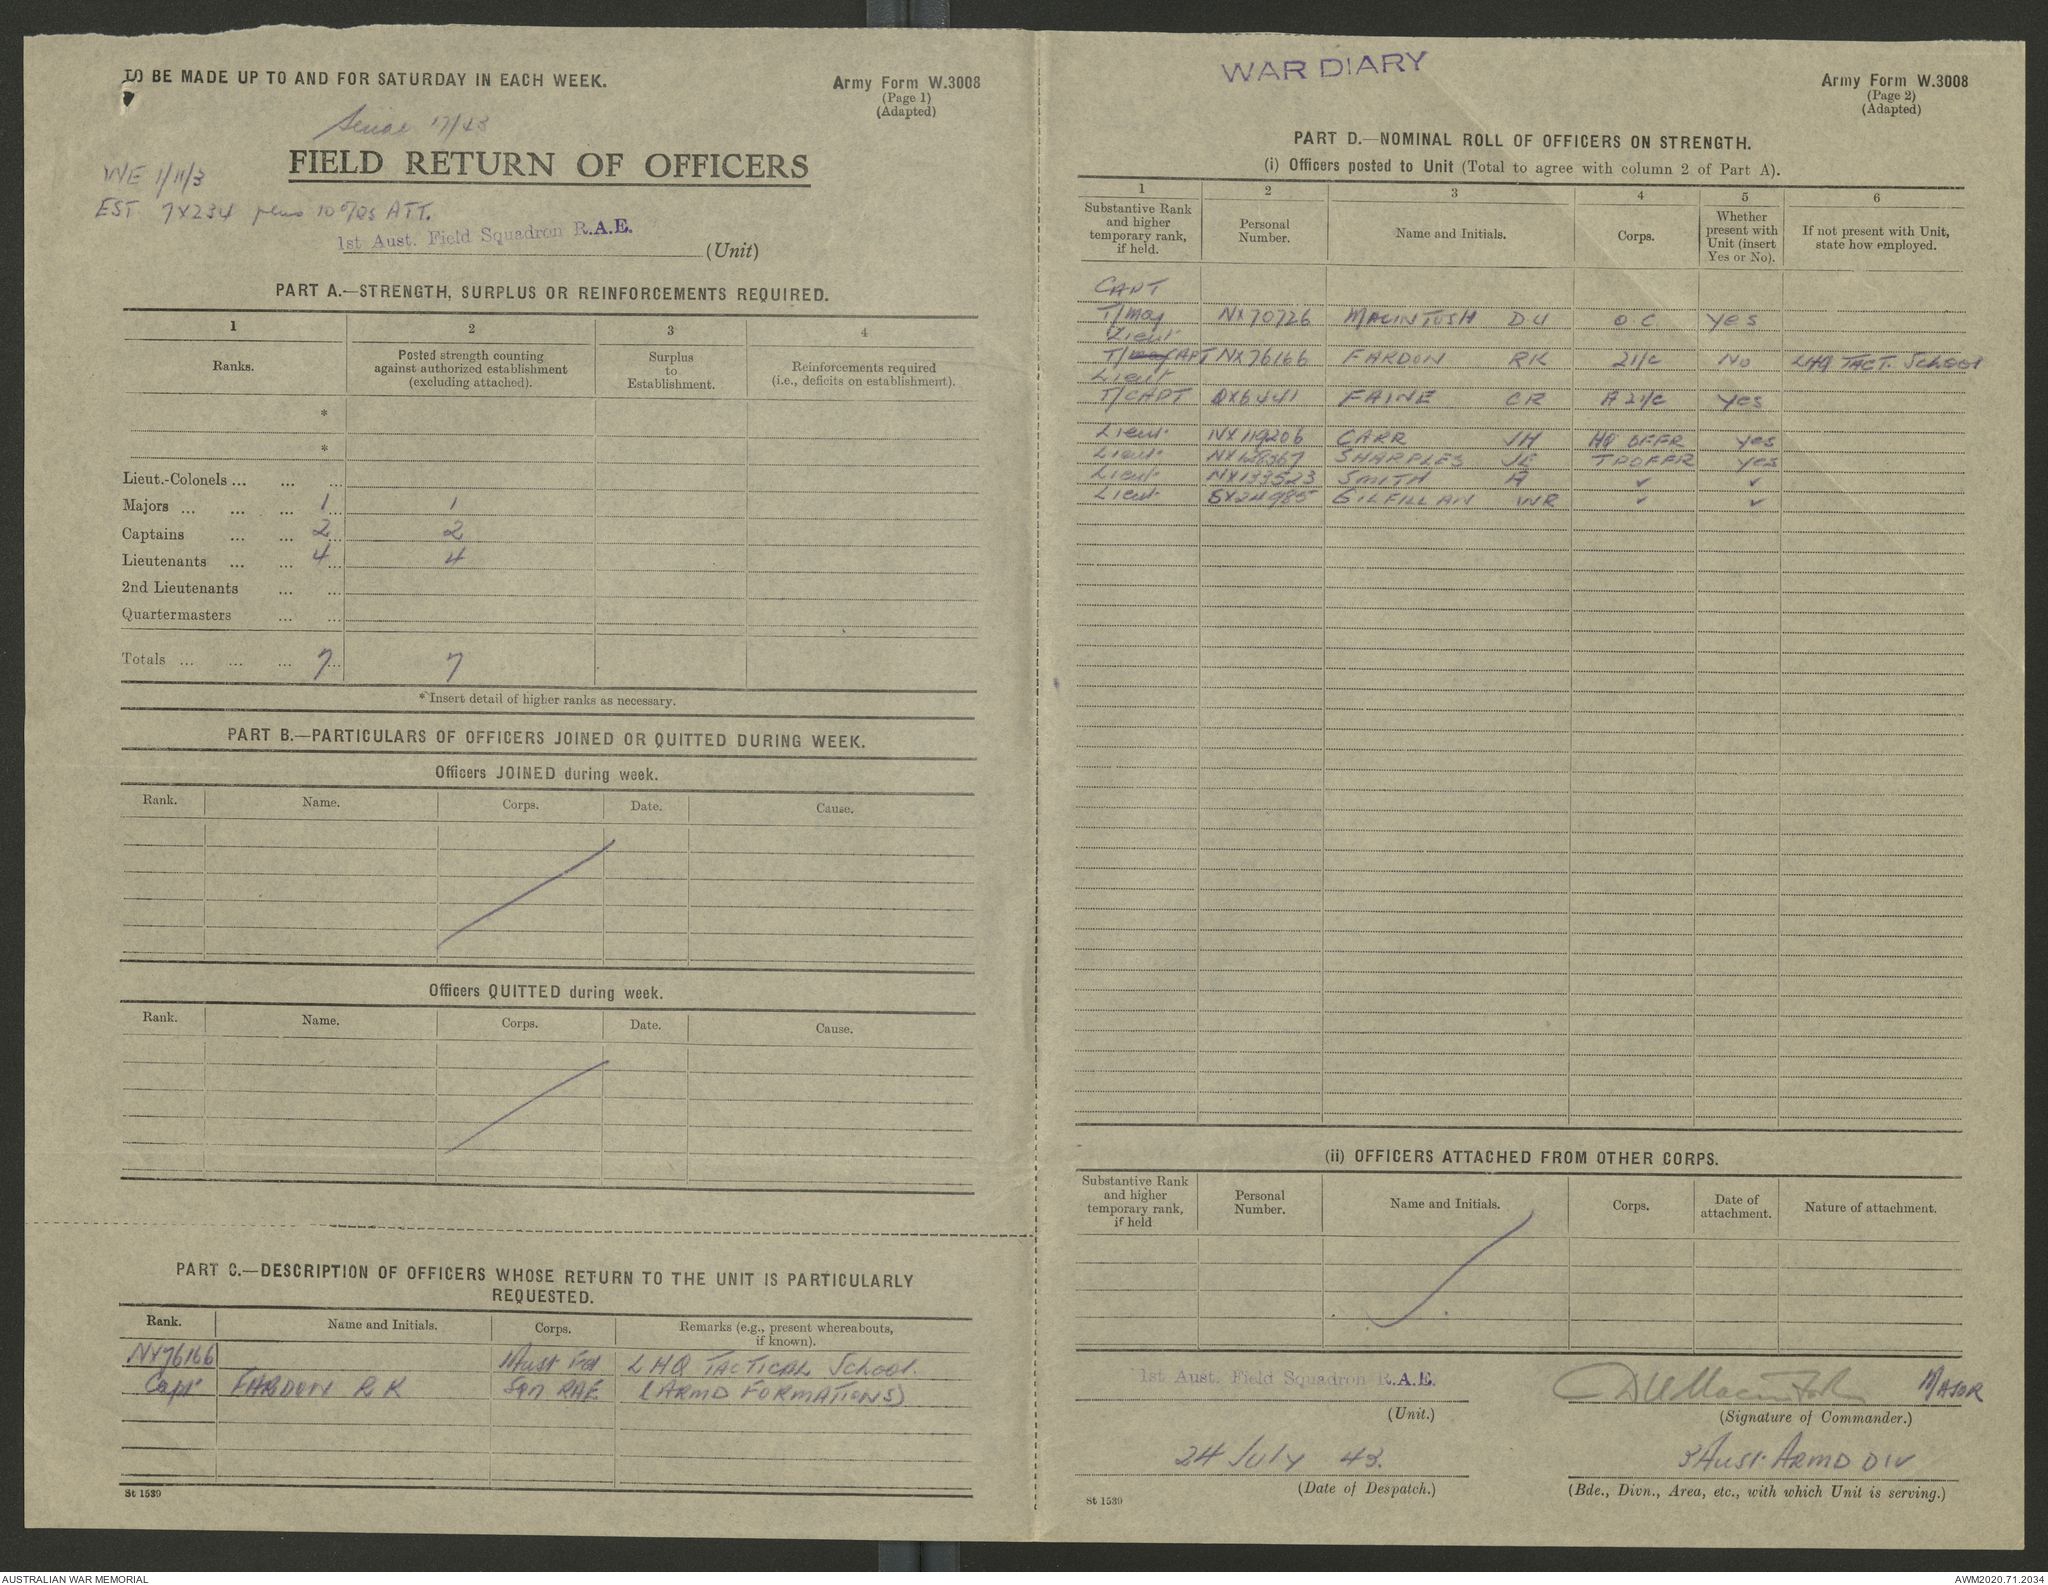 TO BE MADE UP TO AND FOR SATURDAY IN EACH WEEK.
Army Form W.3008
(Page 1)
(Adapted)
Serial 17/43
FIELD RETURN OF OFFICERS
WE 1/11/3
EST 7X234 plus 10 ATT.
1st Aust. Field Squadron R.A.E.
(Unit)
PART A.—STRENGTH, SURPLUS OR REINFORCEMENTS REQUIRED.
1 2 3 4
Ranks. Posted strength counting against authorized establishment (excluding attached). Surplus to Establishment. Reinforcements required (i.e., deficits on establishment).
*
*
Lieut.-Colonels ... ... ...
Majors ... ... ... 1 1
Captains ... ... 2 2
Lieutenants ... ... 4 4
2nd Lieutenants ... ...
Quartermasters ... ...
Totals ... ... ... 7 7
* Insert detail of higher ranks as necessary.
PART B.—PARTICULARS OF OFFICERS JOINED OR QUITTED DURING WEEK.
Officers JOINED during week.
Rank. Name. Corps. Date. Cause.
Officers QUITTED during week.
Rank. Name. Corps. Date. Cause.
PART C.—DESCRIPTION OF OFFICERS WHOSE RETURN TO THE UNIT IS PARTICULARLY
REQUESTED.
Rank. Name and Initials. Corps. Remarks (e.g., present whereabouts, if known).
NX76166 1 Aust Fd LHQ TACTICAL School.
Capt FARDON R K Sqn RAE (ARMD FORMATIONS)
St 1539
WAR DIARY
Army Form W.3008
(Page 2)
(Adapted)
PART D.—NOMINAL ROLL OF OFFICERS ON STRENGTH.
(i) Officers posted to Unit (Total to agree with column 2 of Part A).
1 2 3 4 5 6
Substantive Rank and higher temporary rank, if held. Personal Number. Name and Initials. Corps. Whether present with Unit (insert Yes or No). If not present with Unit, state how employed.
CAPT
T/Maj NX70726 MACINTOSH DU O.C. Yes
Lieut
T/CAPT NX76166 FARDON RK 2I/C No LHQ TACT. School
Lieut
T/CAPT QX6441 FAINE CR A 2I/C Yes
Lieut NX119206 CARR JH HQ OFFR Yes
Lieut SHARPLES JE TP OFFR Yes
Lieut NX133523 SMITH A ✓ ✓
Lieut SX24985 GILFILLAN WR ✓ ✓
(ii) OFFICERS ATTACHED FROM OTHER CORPS.
Substantive Rank and higher temporary rank, if held Personal Number. Name and Initials. Corps. Date of attachment. Nature of attachment.
1st Aust. Field Squadron R.A.E.
(Unit.)
DU Macintosh MAJOR
(Signature of Commander.)
24 July 43.
(Date of Despatch.)
3 Aust. ARMD DIV
(Bde., Divn., Area, etc., with which Unit is serving.)
St 1539
AUSTRALIAN WAR MEMORIAL
AWM2020.71.2034